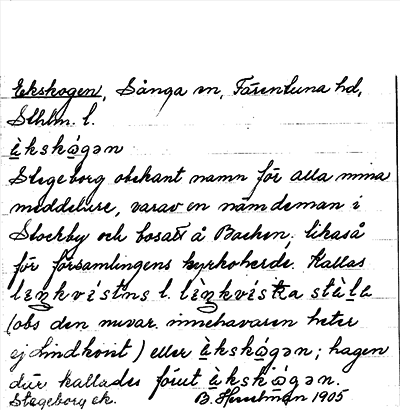 Ekskogen, Sånga sn, Färentuna hd,
Sthlm. l.
ὰkskǫ́gən
Stegeborg obekant namn för alla mina
meddelare, varav en nämdeman i
Stockby och bosatt å Backen, likaså
för församlingens kyrkoherde. Kallas
lìŋkvistns l. lìŋkvistka stàlə
(obs den nuvar. innehavaren heter
ej Lindkvist) eller ὰkskǫ́gən; hagen
där kallades förut ὰkskǫ́gən.
Stegeborg ek. 1905